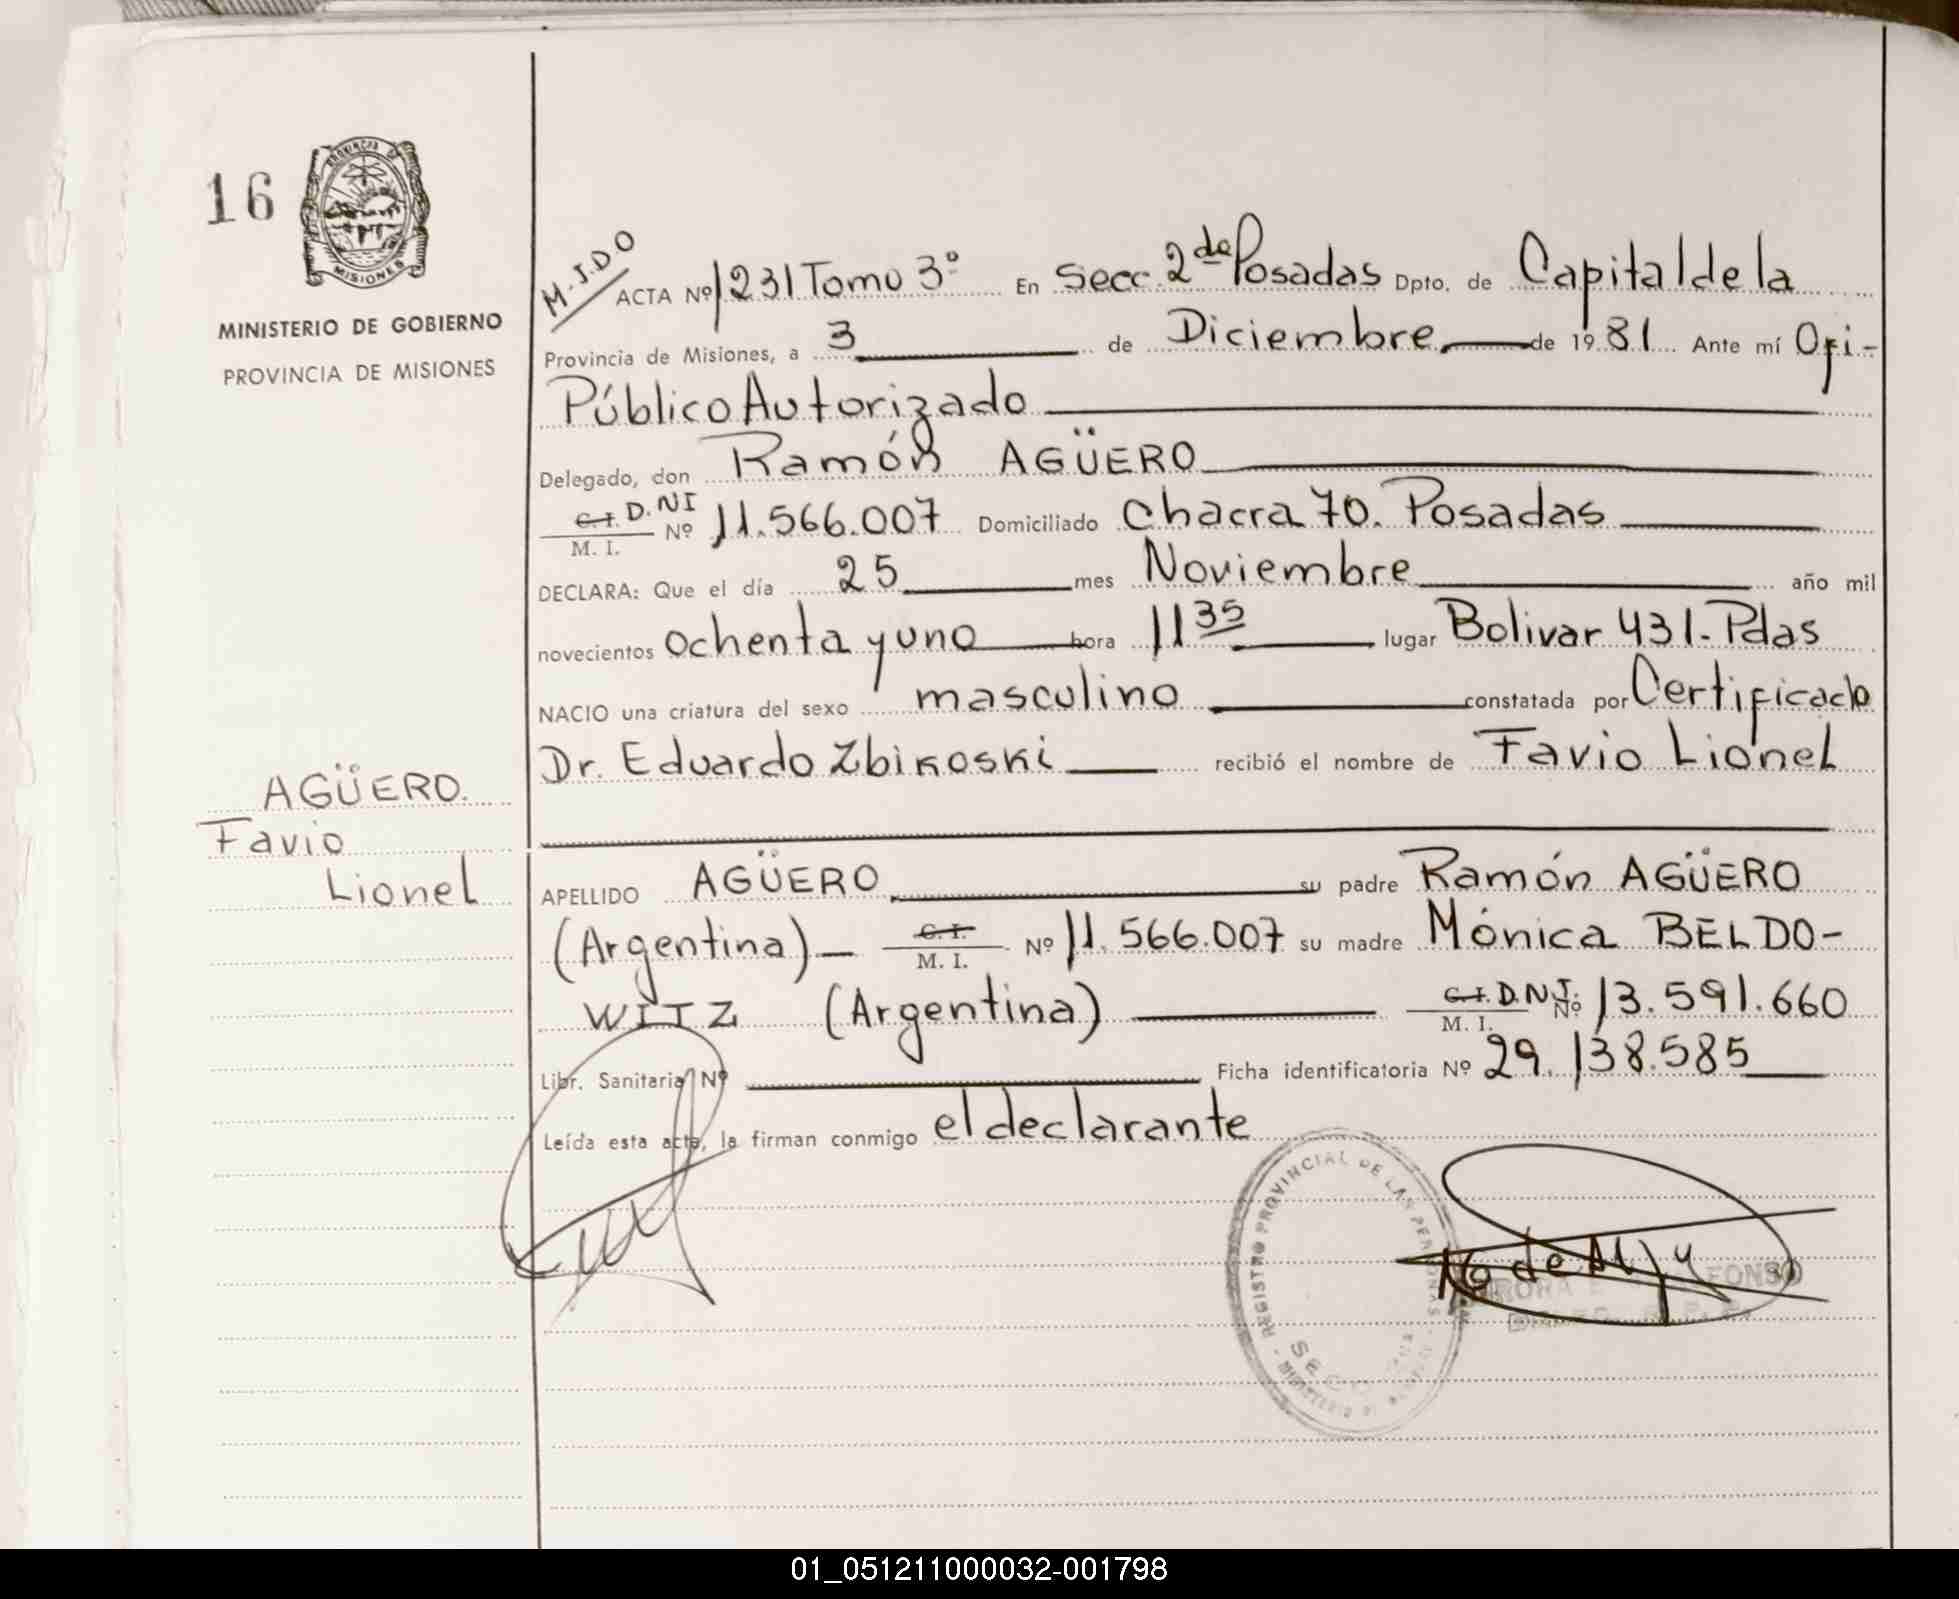 16
PROVINCIA DE
MISIONES
MINISTERIO DE GOBIERNO
PROVINCIA DE MISIONES
M.I.D.O
ACTA Nº 1231 Tomo 3º En Secc. 2da Posadas Dpto. de Capital de la
Provincia de Misiones, a 3 de Diciembre de 1981 Ante mí Ofi-
Público Autorizado
Delegado, don Ramón AGÜERO
C.I. D.NI
M. I. Nº 11.566.007 Domiciliado Chacra 70. Posadas
DECLARA: Que el día 25 mes Noviembre año mil
novecientos ochenta y uno hora 11 35 lugar Bolivar 431-Pdas
NACIO una criatura del sexo masculino constatada por Certificado
Dr. Eduardo Zbikoski recibió el nombre de Favio Lionel
AGÜERO.
Favio
Lionel
APELLIDO AGÜERO su padre Ramón AGÜERO
(Argentina) C.I. M. I. Nº 11.566.007 su madre Mónica BELDO-
WITZ (Argentina) C.I. D.N.I. M. I. Nº 13.591.660
Libr. Sanitaria Nº Ficha identificatoria Nº 29.138.585
Leída esta acta, la firman conmigo el declarante
REGISTRO PROVINCIAL DE LAS PERSONAS